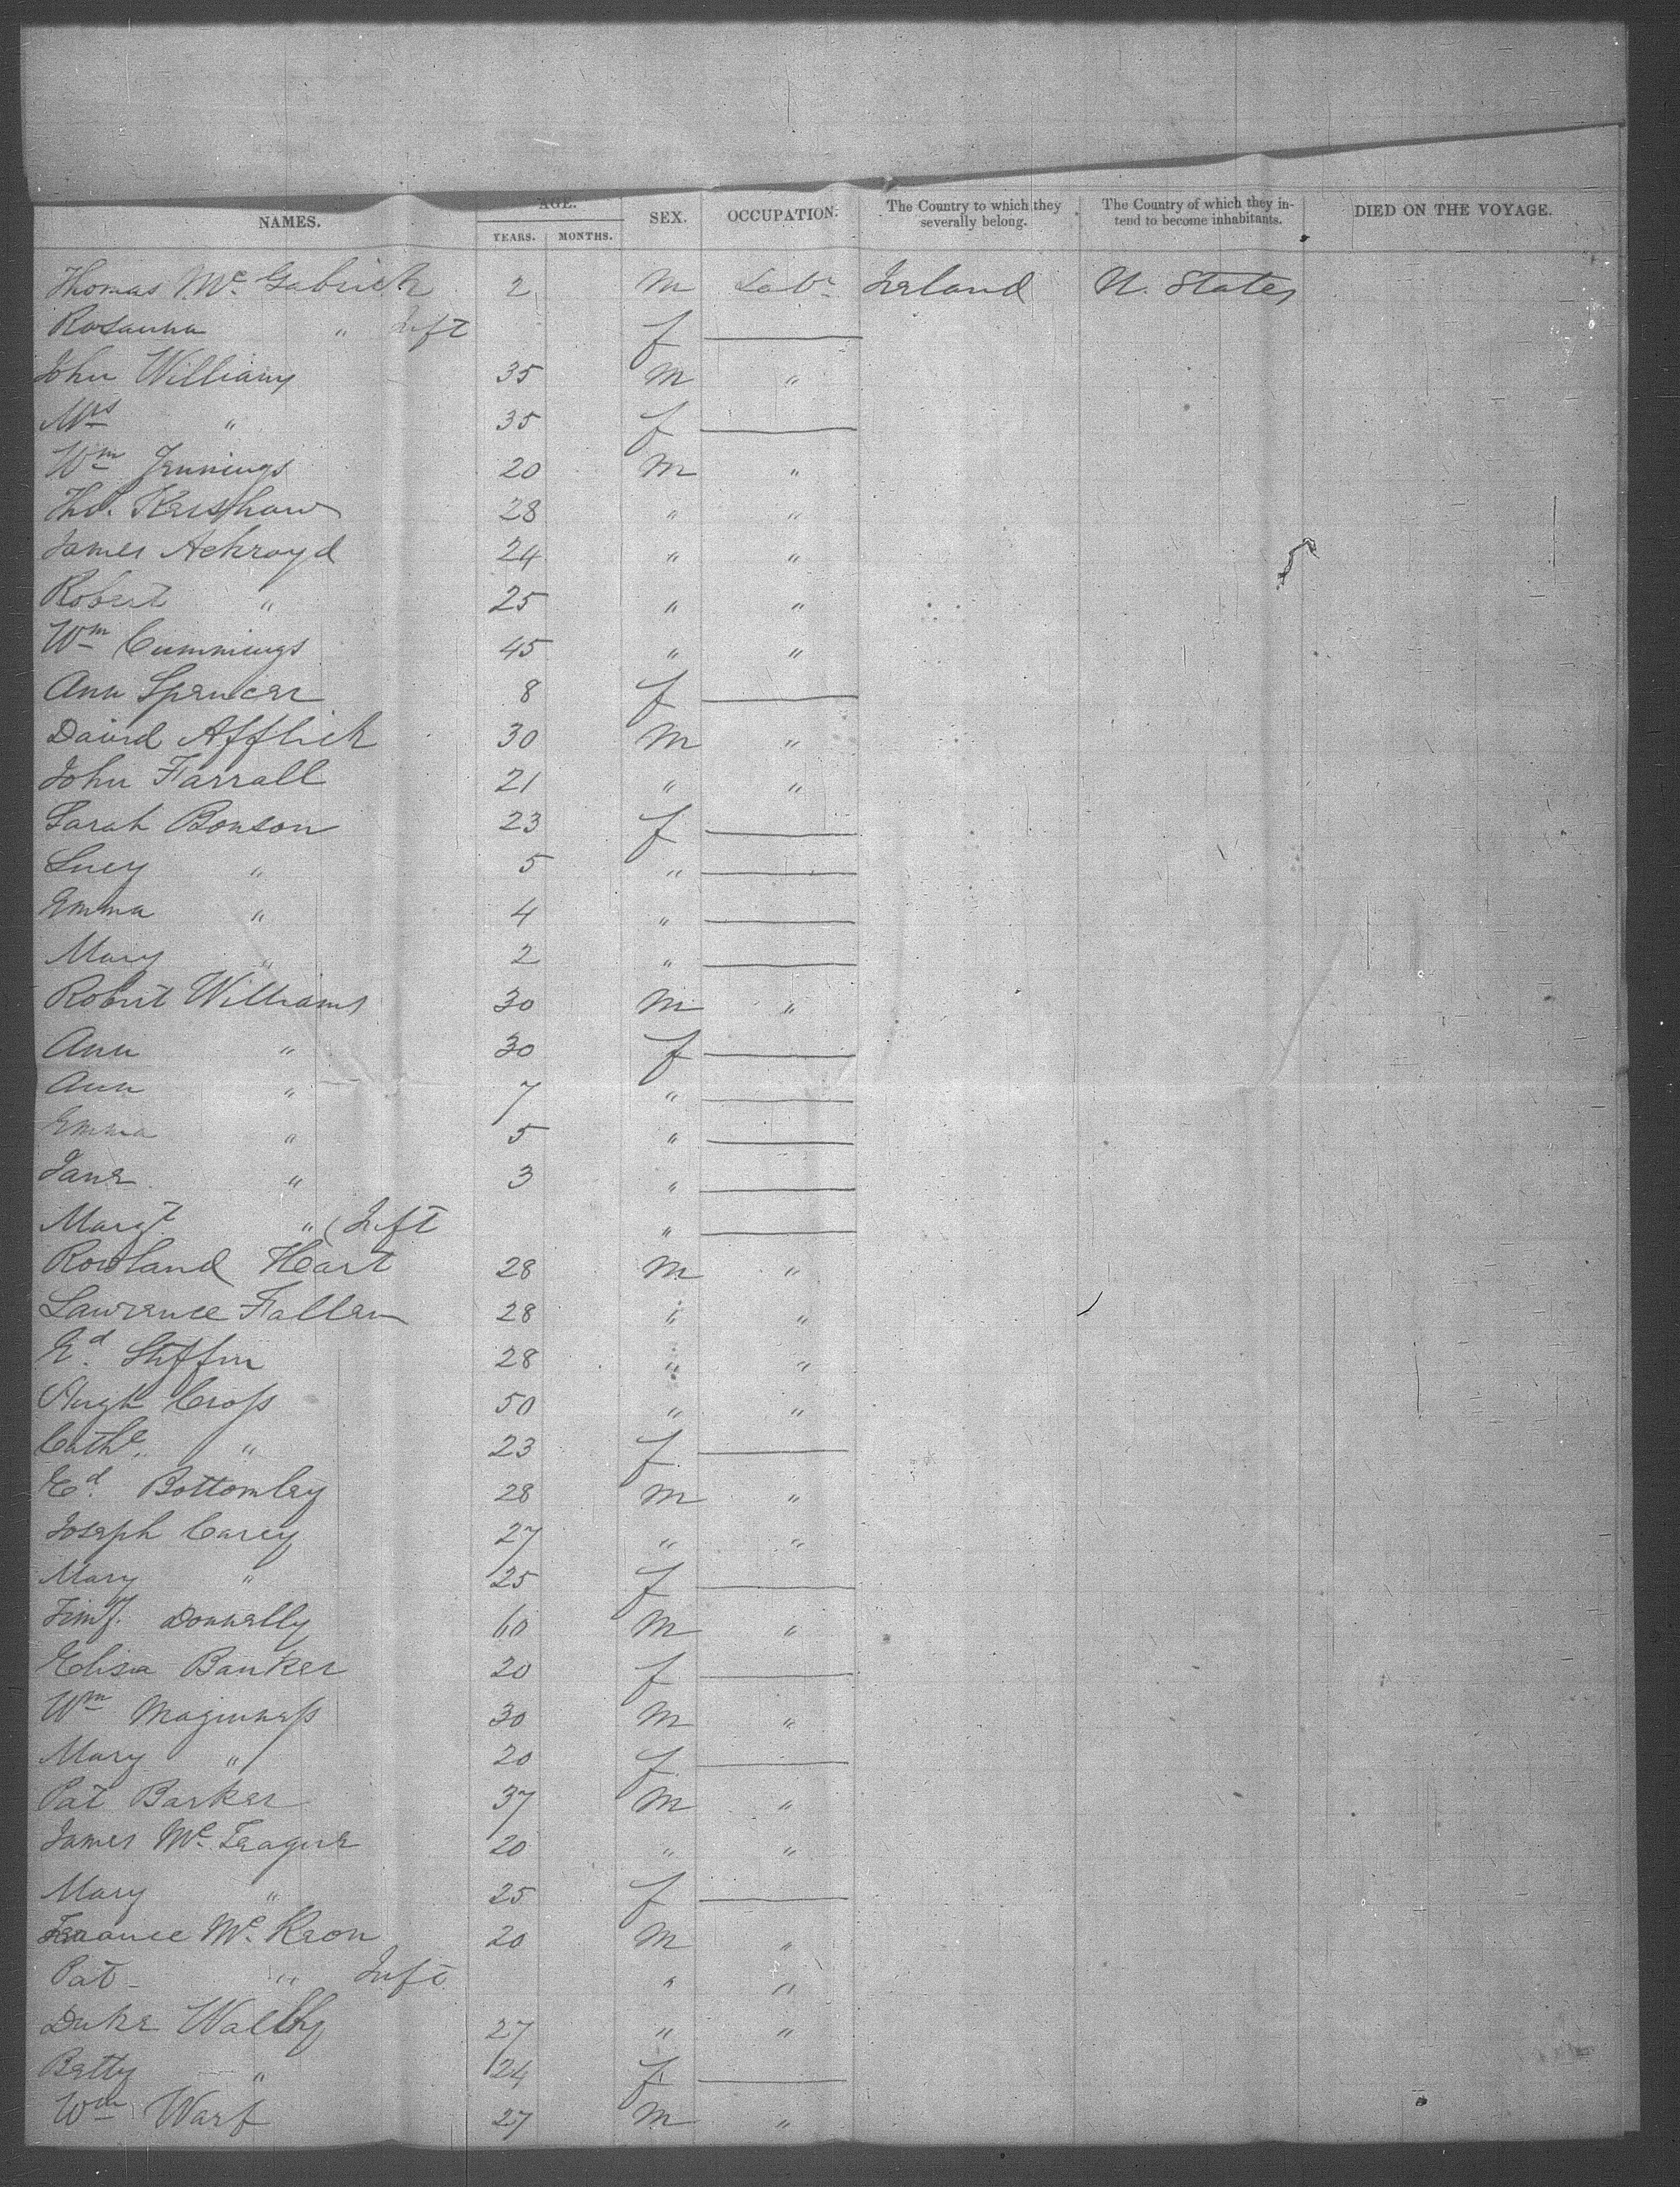 NAMES. AGE. YEARS. MONTHS. SEX. OCCUPATION. The Country to which they severally belong. The Country of which they intend to become inhabitants. DIED ON THE VOYAGE.
Thomas Mc Gabrick 2 M Labr Ireland U. States
Rosanna " Inft f
John Williams 35 M "
Mrs " 35 f
Wm Jennings 20 M "
Tho. Kershaw 28 " "
James Ackroyd 24 " "
Robert " 25 " "
Wm Cummings 45 " "
Ann Spencer 8 f
David Afflick 30 M "
John Farrall 21 " "
Sarah Bonson 23 f
Lucy " 5 "
Emma " 4 "
Mary " 2 "
Robert Williams 30 M "
Ann " 30 f
Ann " 7 "
Emma " 5 "
Jane " 3 "
Margt " (Inft "
Rowland Hart 28 M "
Lawrence Fallen 28 " "
Ed. Stiffin 28 " "
Hugh Cross 50 " "
Cathe. " 23 f
Ed. Bottomley 28 M "
Joseph Carey 27 " "
Mary " 25 f
Timy. Donnelly 60 M "
Elisa Banker 20 f
Wm Maginness 30 M "
Mary " 20 f
Pat Barker 37 M "
James Mc Teague 20 " "
Mary " 25 f
Terance Mc Keon 20 M "
Pat " Inft " "
Duke Walthy 27 " "
Betty " 24 f
Wm Warf 27 M "